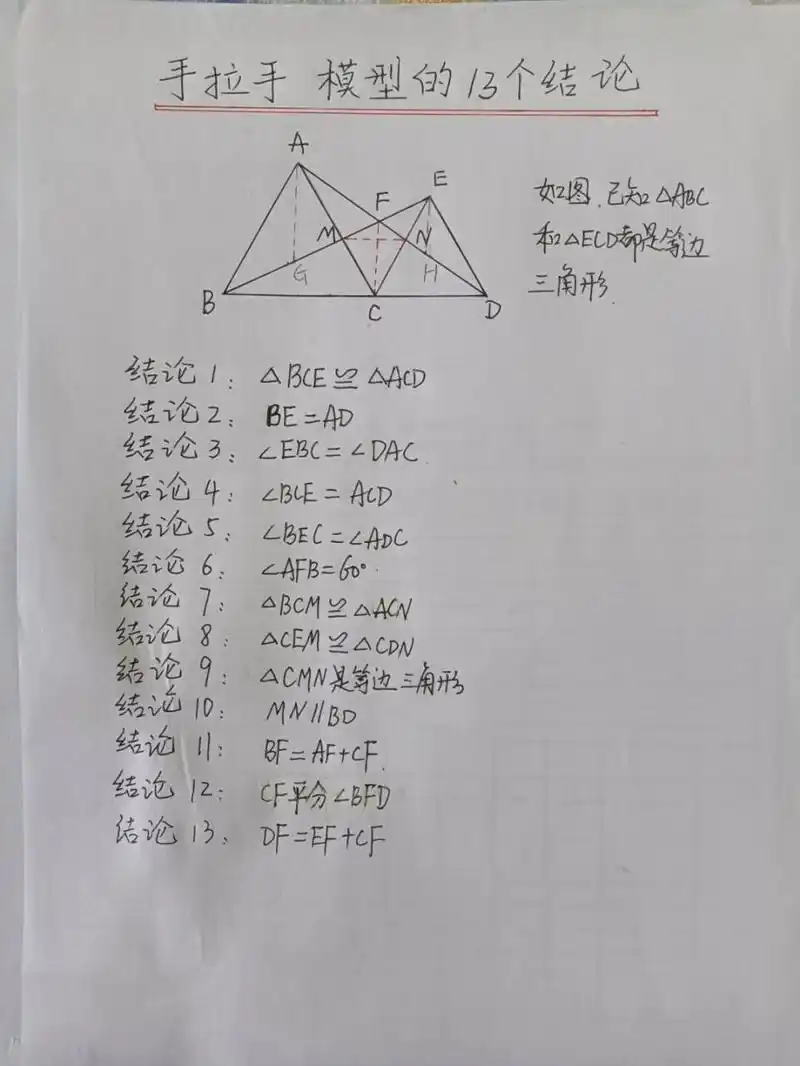 手拉手 模型的13个结论
A
E
F
M
N
G
H
B
C
D
如图,已知△ABC
和△ECD都是等边
三角形.
结论1: △BCE≌△ACD
结论2: BE=AD
结论3: ∠EBC=∠DAC
结论4: ∠BCE=ACD
结论5: ∠BEC=∠ADC
结论6: ∠AFB=60°
结论7: △BCM≌△ACN
结论8: △CEM≌△CDN
结论9: △CMN是等边三角形
结论10: MN∥BD
结论11: BF=AF+CF
结论12: CF平分∠BFD
结论13: DF=EF+CF